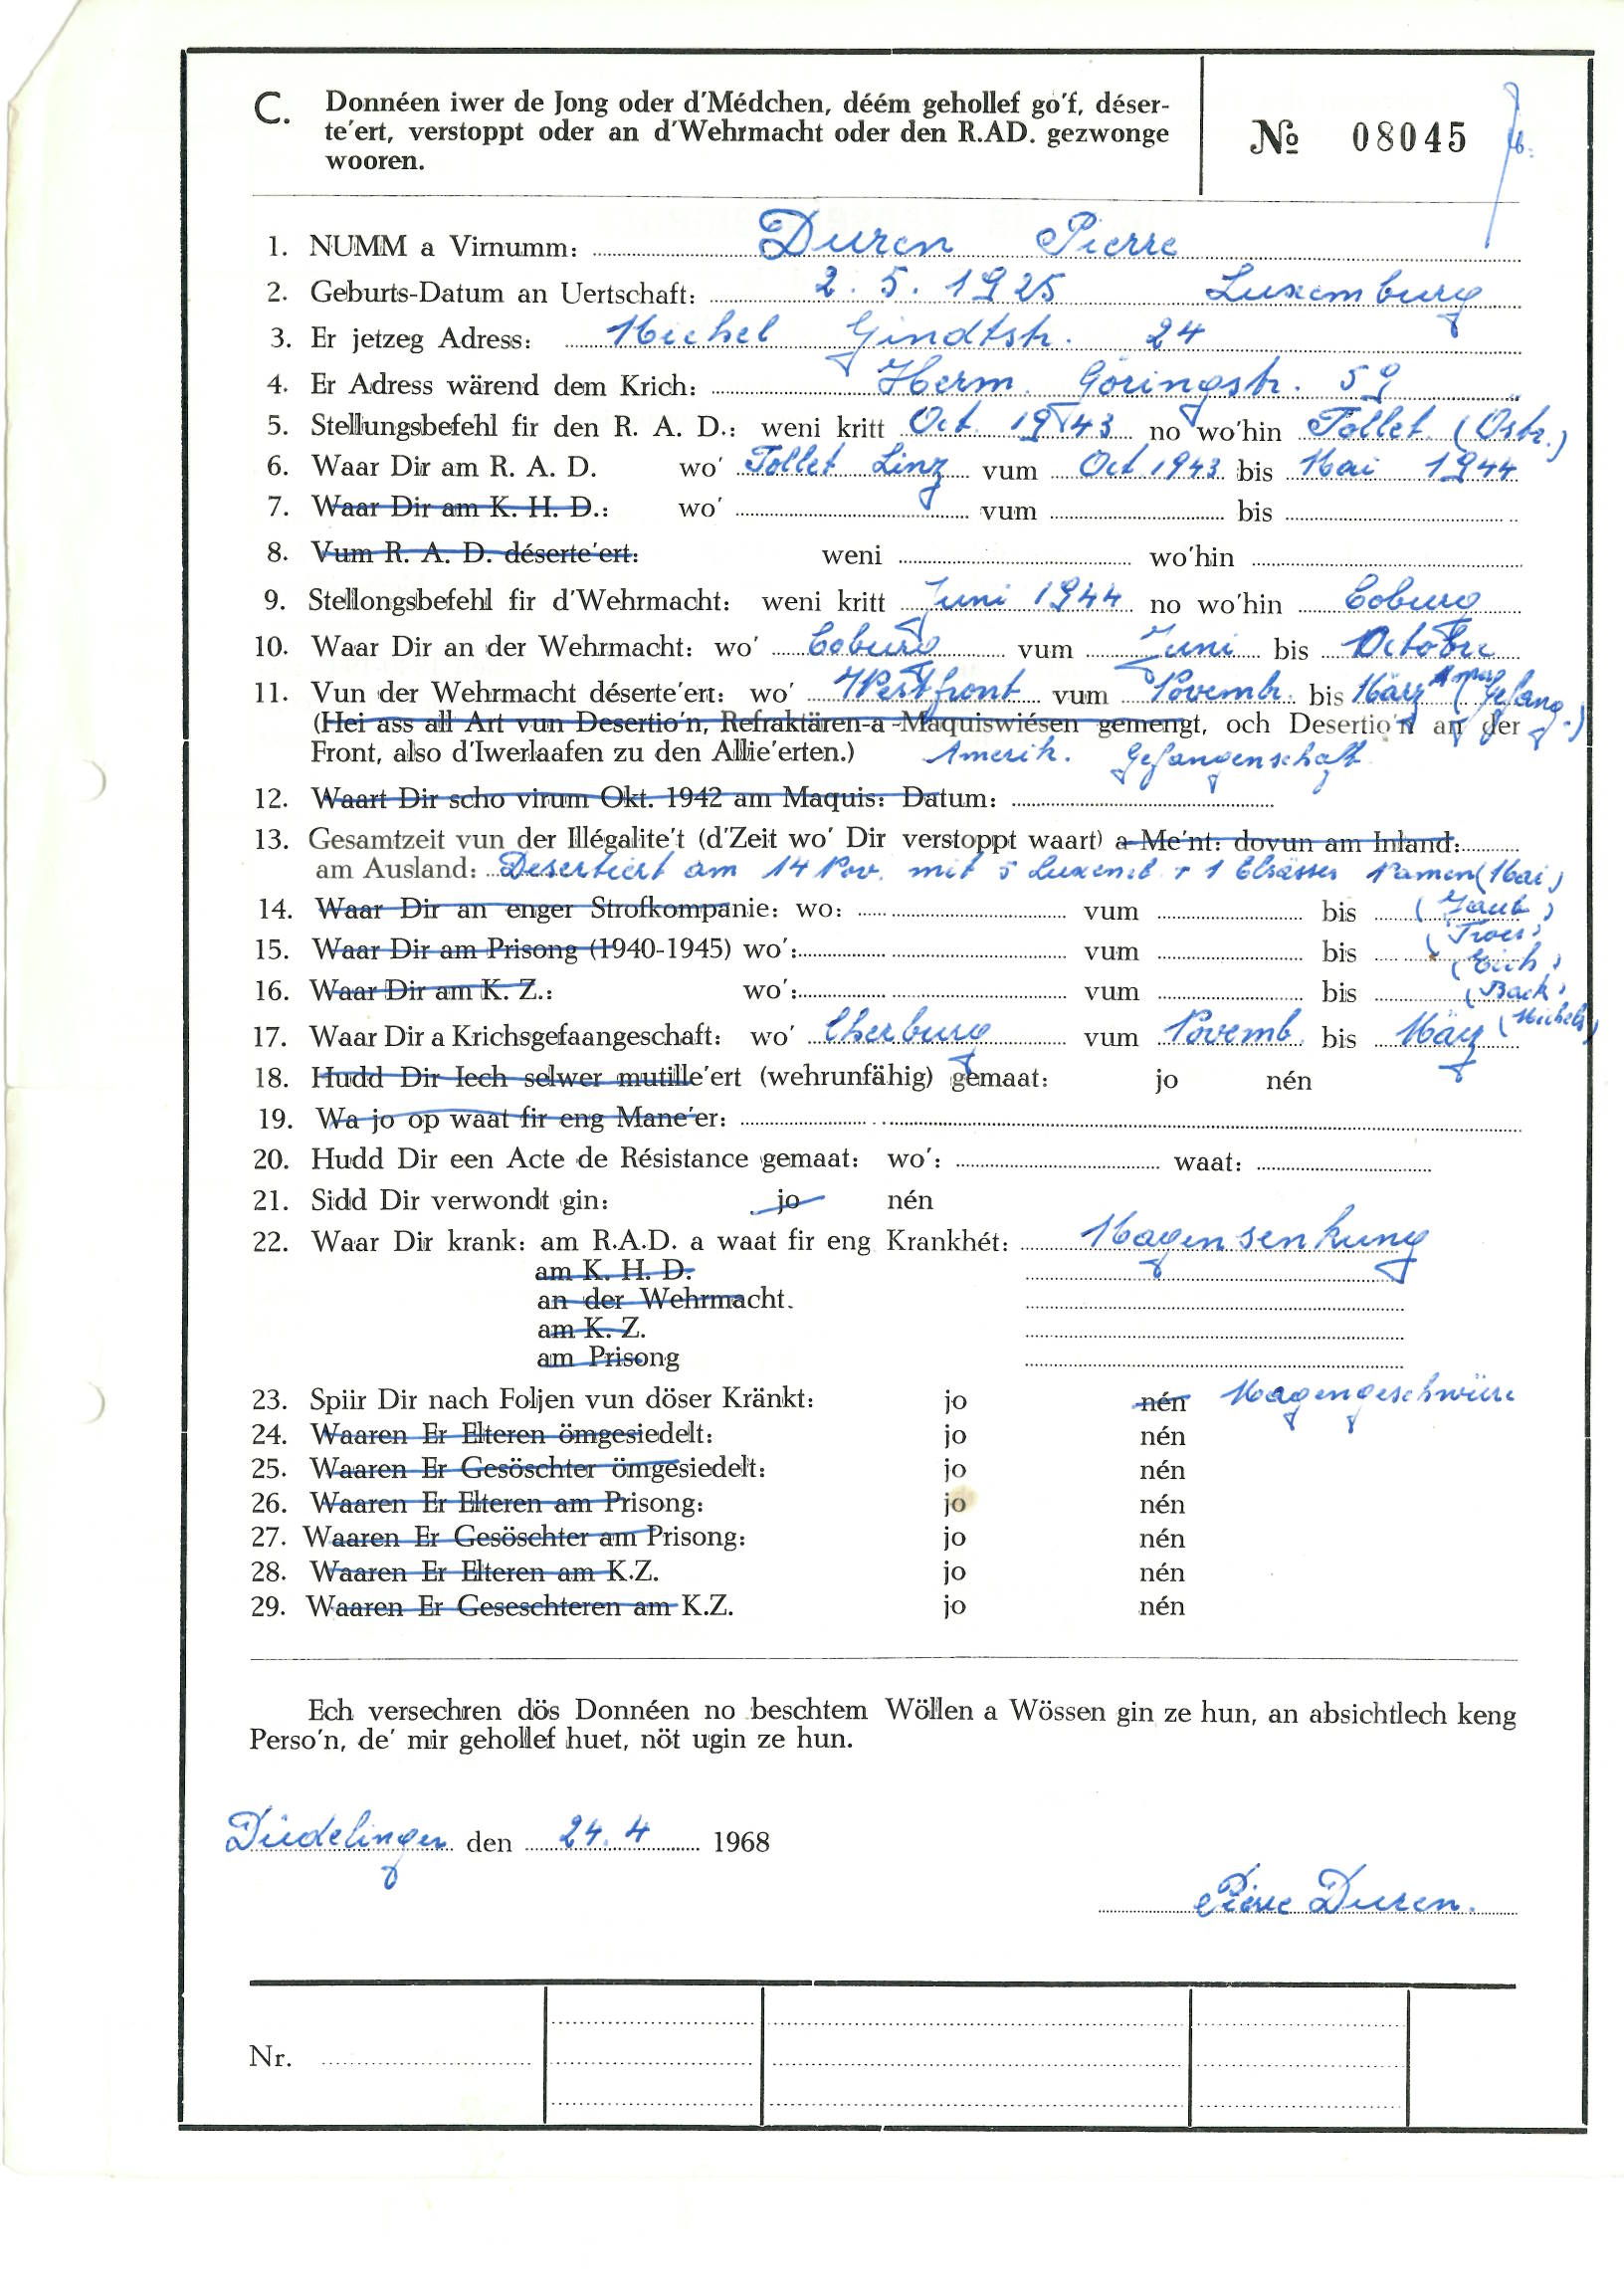 C. Donnéen iwer de Jong oder d'Médchen, déém gehollef go'f, déser-
te'ert, verstoppt oder an d'Wehrmacht oder den R.AD. gezwonge
wooren.
№ 08045
1. NUMM a Virnumm: Duren Pierre
2. Geburts-Datum an Uertschaft: 2. 5. 1925 Luxemburg
3. Er jetzeg Adress: Michel Gindtstr. 24
4. Er Adress wärend dem Krich: Herm. Göringstr. 59
5. Stellungsbefehl fir den R. A. D.: weni kritt Oct. 1943 no wo'hin Tollet (Östr.)
6. Waar Dir am R. A. D. wo' Tollet Linz vum Oct 1943 bis Mai 1944
7. Waar Dir am K. H. D.: wo' vum bis
8. Vum R. A. D. déserte'ert: weni wo'hin
9. Stellongsbefehl fir d'Wehrmacht: weni kritt Juni 1944 no wo'hin Coburg
10. Waar Dir an der Wehrmacht: wo' Coburg vum Juni bis Octobre
11. Vun der Wehrmacht déserte'ert: wo' Westfront vum Novembr. bis März (Gefang.)
(Hei ass all Art vun Desertio'n, Refraktären-a -Maquiswiésen gemengt, och Desertio'n an der
Front, also d'Iwerlaafen zu den Allie'erten.) Amerik. Gefangenschaft
12. Waart Dir scho virum Okt. 1942 am Maquis: Datum:
13. Gesamtzeit vun der Illégalite't (d'Zeit wo' Dir verstoppt waart) a Me'nt: dovun am Inland:
am Ausland: Desertiert am 14 Nov. mit 5 Luxemb. + 1 Elsässer Namen (Mai)
14. Waar Dir an enger Strofkompanie: wo: vum bis (Jaub)
15. Waar Dir am Prisong (1940-1945) wo': vum bis
16. Waar Dir am K. Z.: wo': vum bis (Eich) (Back)
17. Waar Dir a Krichsgefaangeschaft: wo' Cherburg vum Novemb. bis März (Michels)
18. Hudd Dir Iech selwer mutille'ert (wehrunfähig) gemaat: jo nén
19. Wa jo op waat fir eng Mane'er:
20. Hudd Dir een Acte de Résistance gemaat: wo': waat:
21. Sidd Dir verwondt gin: jo nén
22. Waar Dir krank: am R.A.D. a waat fir eng Krankhét: Magensenkung
am K. H. D.
an der Wehrmacht.
am K. Z.
am Prisong
23. Spiir Dir nach Foljen vun döser Kränkt: jo nén Magengeschwüre
24. Waaren Er Elteren ömgesiedelt: jo nén
25. Waaren Er Gesöschter ömgesiedelt: jo nén
26. Waaren Er Elteren am Prisong: jo nén
27. Waaren Er Gesöschter am Prisong: jo nén
28. Waaren Er Elteren am K.Z. jo nén
29. Waaren Er Geseschteren am K.Z. jo nén
Ech versechren dös Donnéen no beschtem Wöllen a Wössen gin ze hun, an absichtlech keng
Perso'n, de' mir gehollef huet, nöt ugin ze hun.
Düdelingen den 24. 4 1968
Pierre Duren.
Nr.